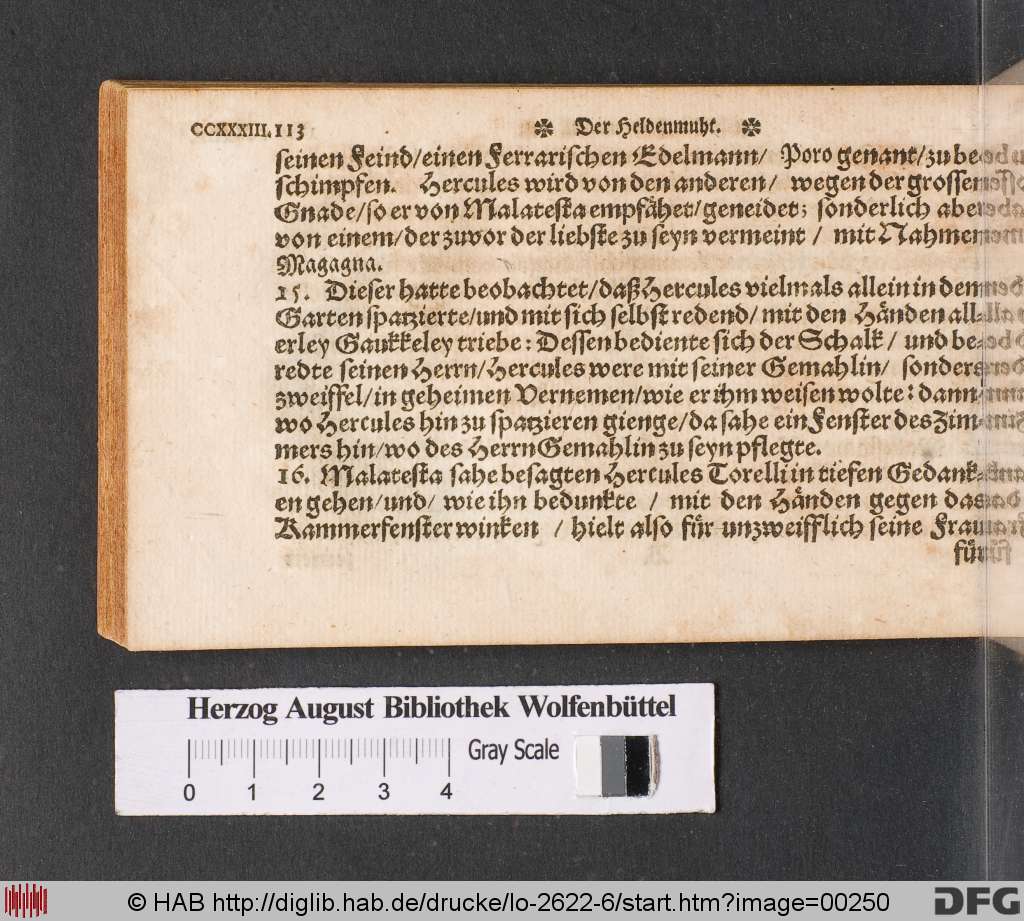 CCXXXIII.113 ✼ Der Heldenmuht. ✼
seinen Feind/einen Ferrarischen Edelmann/ Poro genant/zu be-
schimpfen. Hercules wird von den anderen/ wegen der grossen
Gnade/so er von Malatesta empfähet/geneidet; sonderlich aber
von einem/der zuvor der liebste zu seyn vermeint / mit Nahmen
Magagna.
15. Dieser hatte beobachtet/daß Hercules vielmals allein in dem
Garten spatzierte/und mit sich selbst redend/mit den Händen al-
erley Gaukkeley triebe: Dessen bediente sich der Schalk/ und be-
redte seinen Herrn/Hercules were mit seiner Gemahlin/ sonder
zweiffel/in geheimen Vernemen/wie er ihm weisen wolte: dann
wo Hercules hin zu spatzieren gienge/da sahe ein Fenster des Zim-
mers hin/wo des Herrn Gemahlin zu seyn pflegte.
16. Malatesta sahe besagten Hercules Torelli in tiefen Gedank-
en gehen/und/ wie ihn bedunkte / mit den Händen gegen das
Kammerfenster winken / hielt also für unzweifflich seine Frau
für
Herzog August Bibliothek Wolfenbüttel
Gray Scale
0 1 2 3 4
© HAB http://diglib.hab.de/drucke/lo-2622-6/start.htm?image=00250
DFG